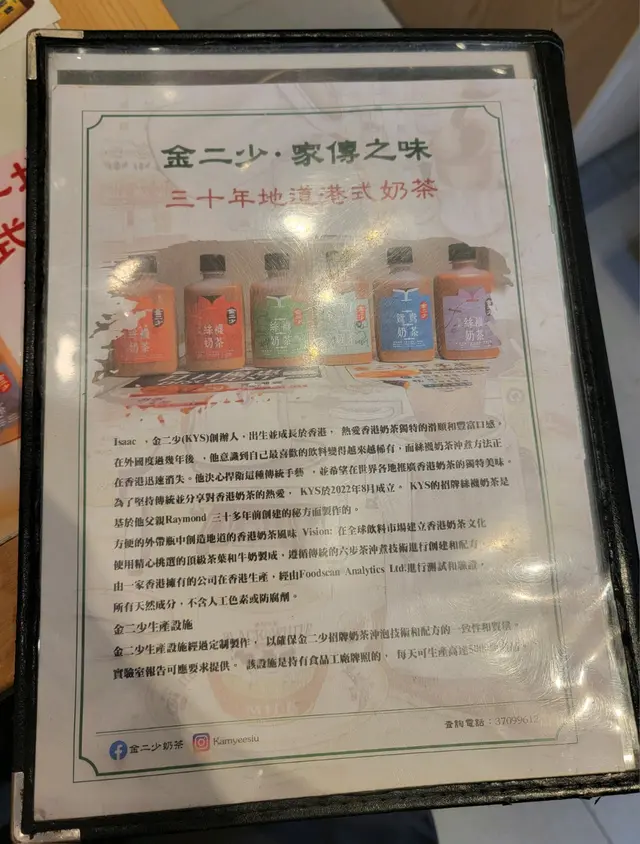 金二少·家傳之味
三十年地道港式奶茶
絲襪奶茶
絲襪奶茶
絲襪
奶茶
鴛鴦奶茶
絲襪奶茶
Isaac ，金二少(KYS)創辦人，出生並成長於香港， 熱愛香港奶茶獨特的滑順和豐富口感，
在外國度過幾年後 ，他意識到自己最喜歡的飲料變得越來越稀有，而絲襪奶茶沖煮方法正
在香港迅速消失。他決心捍衛這種傳統手藝 ，並希望在世界各地推廣香港奶茶的獨特美味。
為了堅持傳統並分享對香港奶茶的熱愛， KYS於2022年8月成立。 KYS的招牌絲襪奶茶是
基於他父親Raymond 三十多年前創建的秘方面製作的。
方便的外帶瓶中創造地道的香港奶茶風味 Vision: 在全球飲料市場建立香港奶茶文化
使用精心挑選的頂級茶葉和牛奶製成，遵循傳統的六步茶沖煮技術進行創建和配方
由一家香港擁有的公司在香港生產，經由Foodscan Analytics Ltd進行測試和驗證，
所有天然成分，不含人工色素或防腐劑。
金二少生產設施
金二少生產設施經過定制製作， 以確保金二少招牌奶茶沖泡技術和配方的一致性和質量。
實驗室報告可應要求提供。 該設施是持有食品工廠牌照的， 每天可生產高達
查詢電話：3709961
金二少奶茶 Kamyeesiu